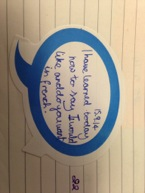 15.9.14
I have learned today
how to say I would
like and do you want
in french.